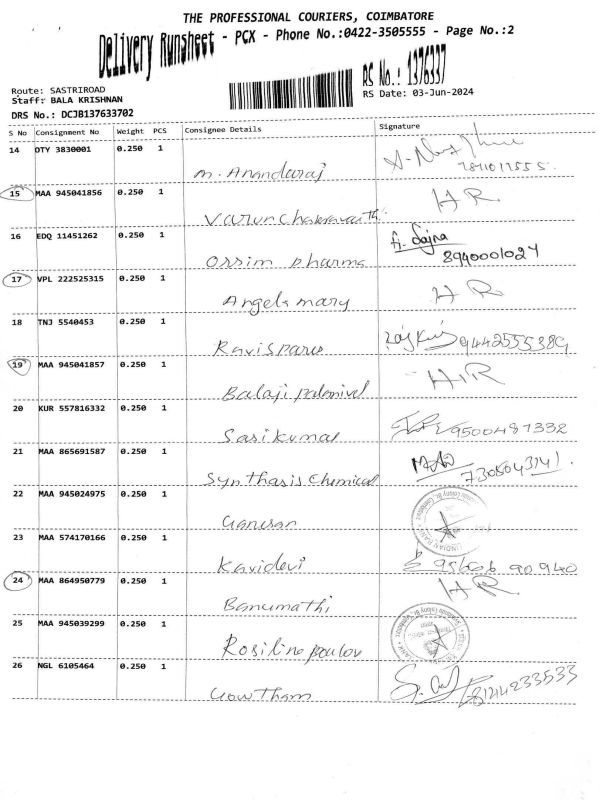 THE PROFESSIONAL COURIERS, COIMBATORE
Delivery Runsheet - PCX - Phone No.:0422-3505555 - Page No.:2
RS No.: 1376337
Route: SASTRIROAD
Staff: BALA KRISHNAN
RS Date: 03-Jun-2024
DRS No.: DCJB137633702
S No Consignment No Weight PCS Consignee Details Signature
14 DTY 3830001 0.250 1
M. Anandaraj
15 MAA 945041856 0.250 1 HR
Varun Chakravarthi
16 EDQ 11451262 0.250 1
Ossim Pharma 8940001024
17 VPL 222525315 0.250 1 HR
Angels mary
18 TNJ 5540453 0.250 1
19 MAA 945041857 0.250 1 H.R
Balaji
20 KUR 557816332 0.250 1
Sasikumar 9500487332
21 MAA 865691587 0.250 1
Synthasis Chemical
22 MAA 945024975 0.250 1
Ganesan
23 MAA 574170166 0.250 1
Kavidevi 95666 90940
24 MAA 864950779 0.250 1 HR
Banumathi
25 MAA 945039299 0.250 1
26 NGL 6105464 0.250 1
Gowtham